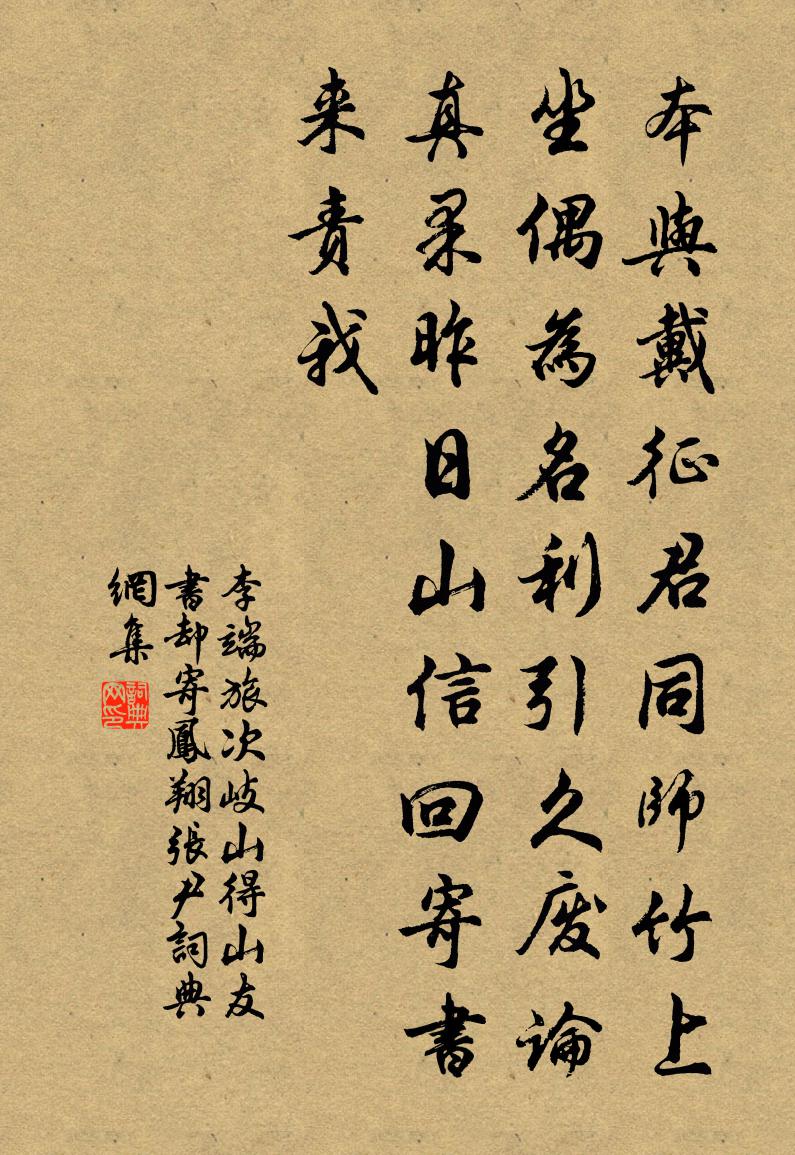 本與戴征君同師竹上
坐偶為名利引久废論
真果昨日山信回寄書
来責我
李端旅次岐山得山友
書却寄鳳翔張尹詞典
網集
詞典
网印